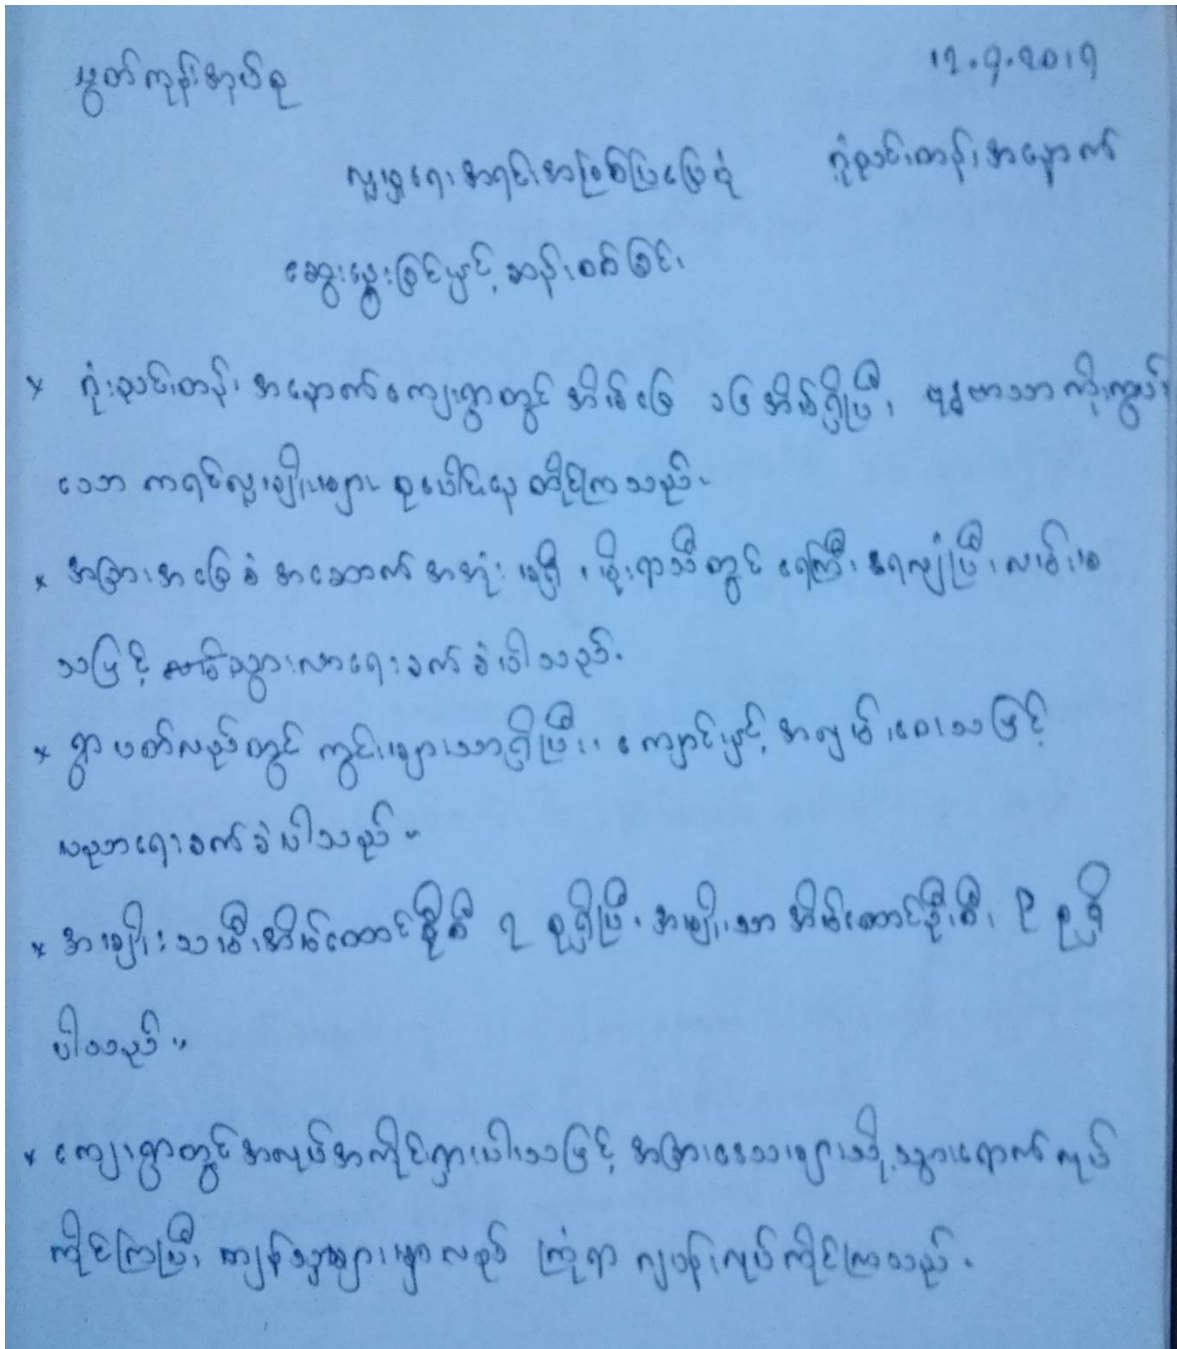 မွတ်ကုန်းအုပ်စု
12.9.2019
လူမှုရေးအရင်းအမြစ်ပြမြေပုံ ဂုံညင်းတန်းအနောက်
ဆွေးနွေးခြင်းနှင့် ဆန်းစစ်ခြင်း
* ဂုံးညင်းတန်း အနောက်ကျေးရွာတွင် အိမ်ခြေ အိမ်ရှိပြီး ဗုဒ္ဓဘာသာကိုးကွယ်
သော ကရင်လူမျိုးများ စုပေါင်းနေထိုင်ကြသည်။
* အခြားအခြေခံ အဆောက်အအုံး မရှိ၊ မိုးရာသီတွင် ရေကြီး ရေလျှံပြီး လမ်း
သဖြင့် သွားလာရေးခက်ခဲပါသည်။
* ရွာပတ်လည်တွင် ကွင်းများသာရှိပြီး၊ ကျောင်းနှင့် အလှမ်းဝေးသဖြင့်
ပညာရေးခက်ခဲပါသည်။
* အမျိုးသမီးအိမ်ထောင်ဦးစီး ၃ ခုရှိပြီး အမျိုးသားအိမ်ထောင်ဦးစီး ခုရှိ
ပါသည်။
* ကျေးရွာတွင်အလုပ်အကိုင်ရှားပါးသဖြင့် အခြားဒေသများသို့သွားရောက်လုပ်
ကိုင်ကြပြီး ကျန်သူများမှာလည်း ကြုံရာကျပန်းလုပ်ကိုင်ကြသည်။